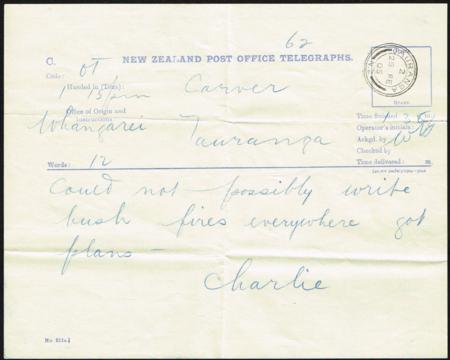 62
C. NEW ZEALAND POST OFFICE TELEGRAPHS.
Code: OT
Handed in (Time): Carver
Office of Origin and Instructions.
Whangarei Tauranga
TAURANGA
2
25 FE
05
N.Z
STAMP.
Time finished
Operator's initials
Ackgd. by
Checked by
Time delivered: m.
Words: 12
Could not possibly write
bush fires everywhere got
plans —
Charlie